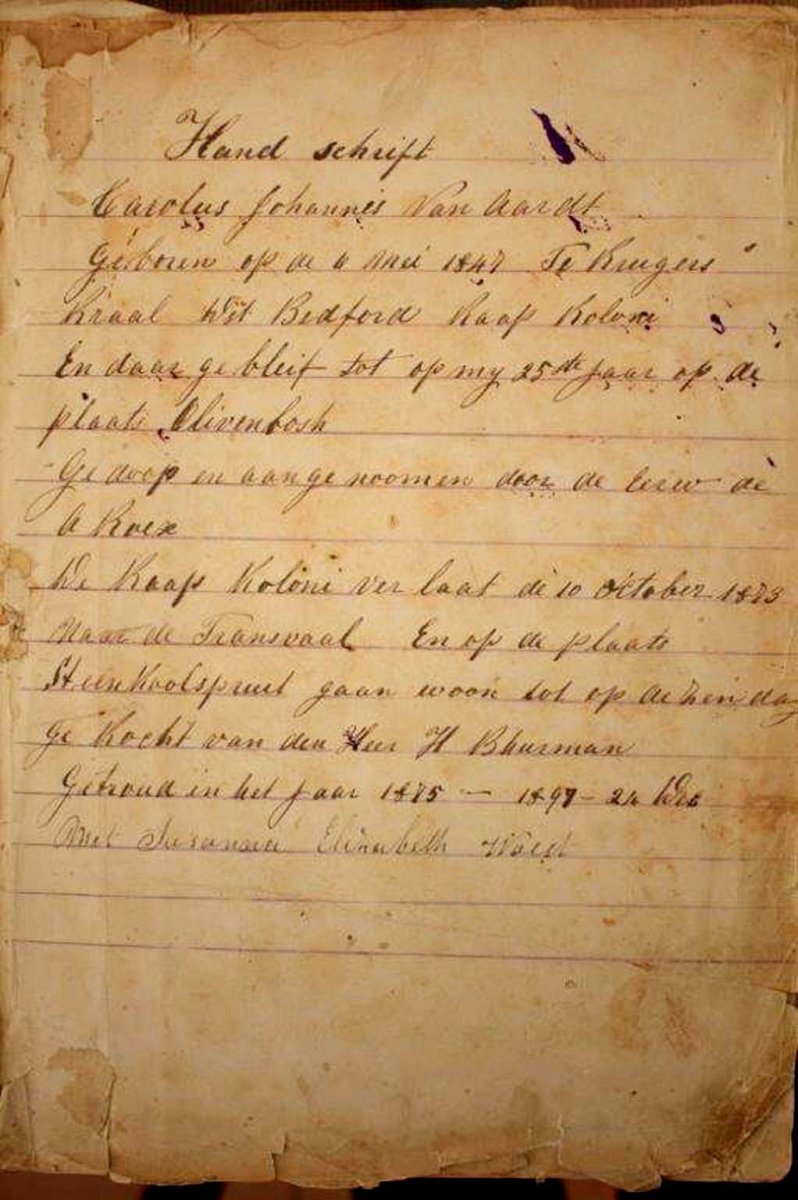 Hand schrift
Carolus Johannis Van Aardt
Geboren op de 4 Mei 1847 Te Krugers
Kraal Dst Bedford Kaap Koloni
En daar ge bleif tot op my 25ste Jaar op de
plaats Olivenbosh
Ge doop en aange noomen door de Eerw de
De Kaap Koloni ver laat de 10 october 1873
Naar de Transvaal En op de plaats
Steenkoolspruit gaan woon tot op de
ge Kocht van den Heer H Bhurman
Getroud in het Jaar 1875 — 1897 - 24 Dec
Met Susanna Elizabeth